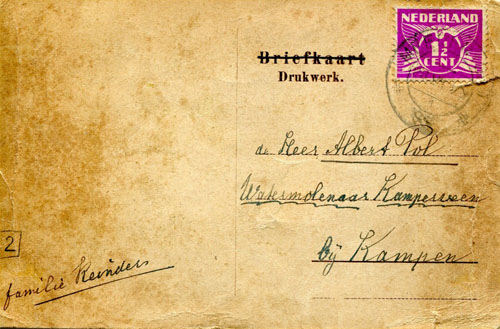 NEDERLAND
1½
CENT
Briefkaart
Drukwerk.
de Heer Albert Pol
Watermolenaar Kamperveen
bij Kampen
2
familie Reinders